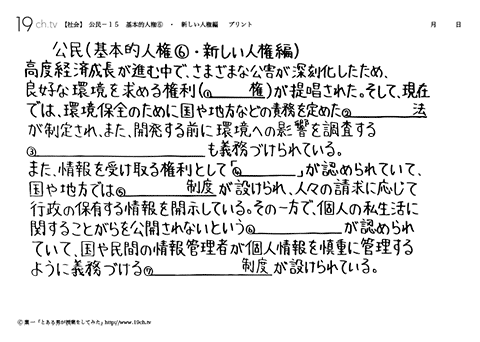 19ch.tv 【社会】 公民－１５ 基本的人権⑥ ・ 新しい人権編 プリント 月 日
公民(基本的人権⑥・新しい人権編)
高度経済成長が進む中で、さまざまな公害が深刻化したため、
良好な環境を求める権利(①______権)が提唱された。そして、現在
では、環境保全のために国や地方などの責務を定めた②________法
が制定され、また、開発する前に環境への影響を調査する
③____________________も義務づけられている。
また、情報を受け取る権利として「④________」が認められていて、
国や地方では⑤________制度が設けられ、人々の請求に応じて
行政の保有する情報を開示している。その一方で、個人の私生活に
関することがらを公開されないという⑥____________が認められ
ていて、国や民間の情報管理者が個人情報を慎重に管理する
ように義務づける⑦____________制度が設けられている。
© 葉一「とある男が授業をしてみた」http://www.19ch.tv